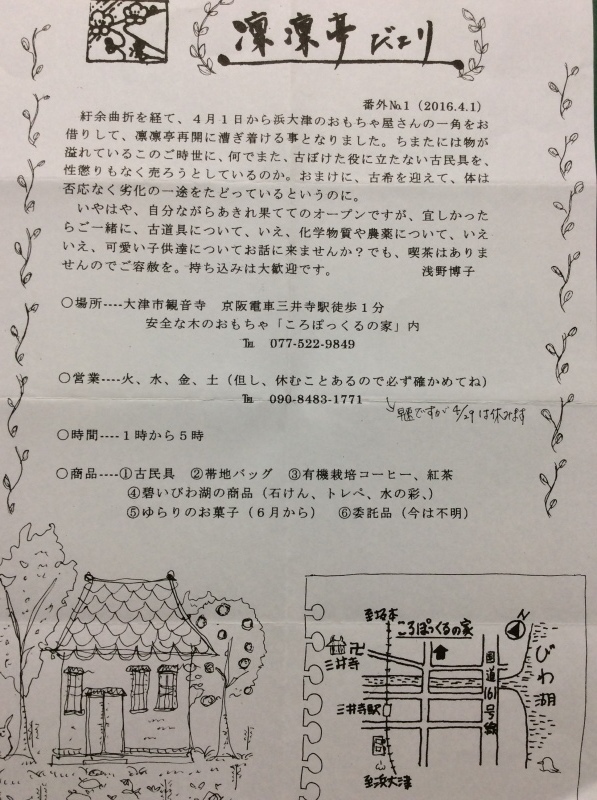 凛凛亭だより
番外№1（2016.4.1）
紆余曲折を経て、４月１日から浜大津のおもちゃ屋さんの一角をお
借りして、凛凛亭再開に漕ぎ着ける事となりました。ちまたには物が
溢れているこのご時世に、何でまた、古ぼけた役に立たない古民具を、
性懲りもなく売ろうとしているのか。おまけに、古希を迎えて、体は
否応なく劣化の一途をたどっているというのに。
いやはや、自分ながらあきれ果ててのオープンですが、宜しかった
らご一緒に、古道具について、いえ、化学物質や農薬について、いえ
いえ、可愛い子供達についてお話に来ませんか？でも、喫茶はありま
せんのでご容赦を。持ち込みは大歓迎です。 浅野博子
〇場所----大津市観音寺 京阪電車三井寺駅徒歩１分
安全な木のおもちゃ「ころぽっくるの家」内
℡ 077-522-9849
〇営業----火、水、金、土（但し、休むことあるので必ず確かめてね）
℡ 090-8483-1771
早速ですが 4/29 は休みます
〇時間----１時から５時
〇商品----①古民具 ②帯地バッグ ③有機栽培コーヒー、紅茶
④碧いびわ湖の商品（石けん、トレペ、水の彩、）
⑤ゆらりのお菓子（６月から） ⑥委託品（今は不明）
至坂本
ころぽっくるの家
N
卍
三井寺
国道161号線
びわ湖
三井寺駅
至浜大津